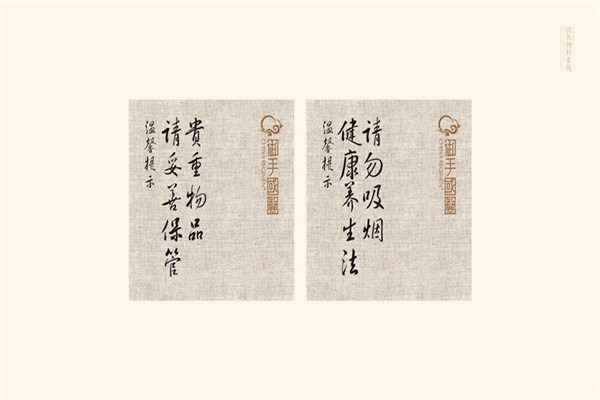 貴重物品
请妥善保管
温馨提示
御手國醫
请勿吸烟
健康养生法
温馨提示
御手國醫